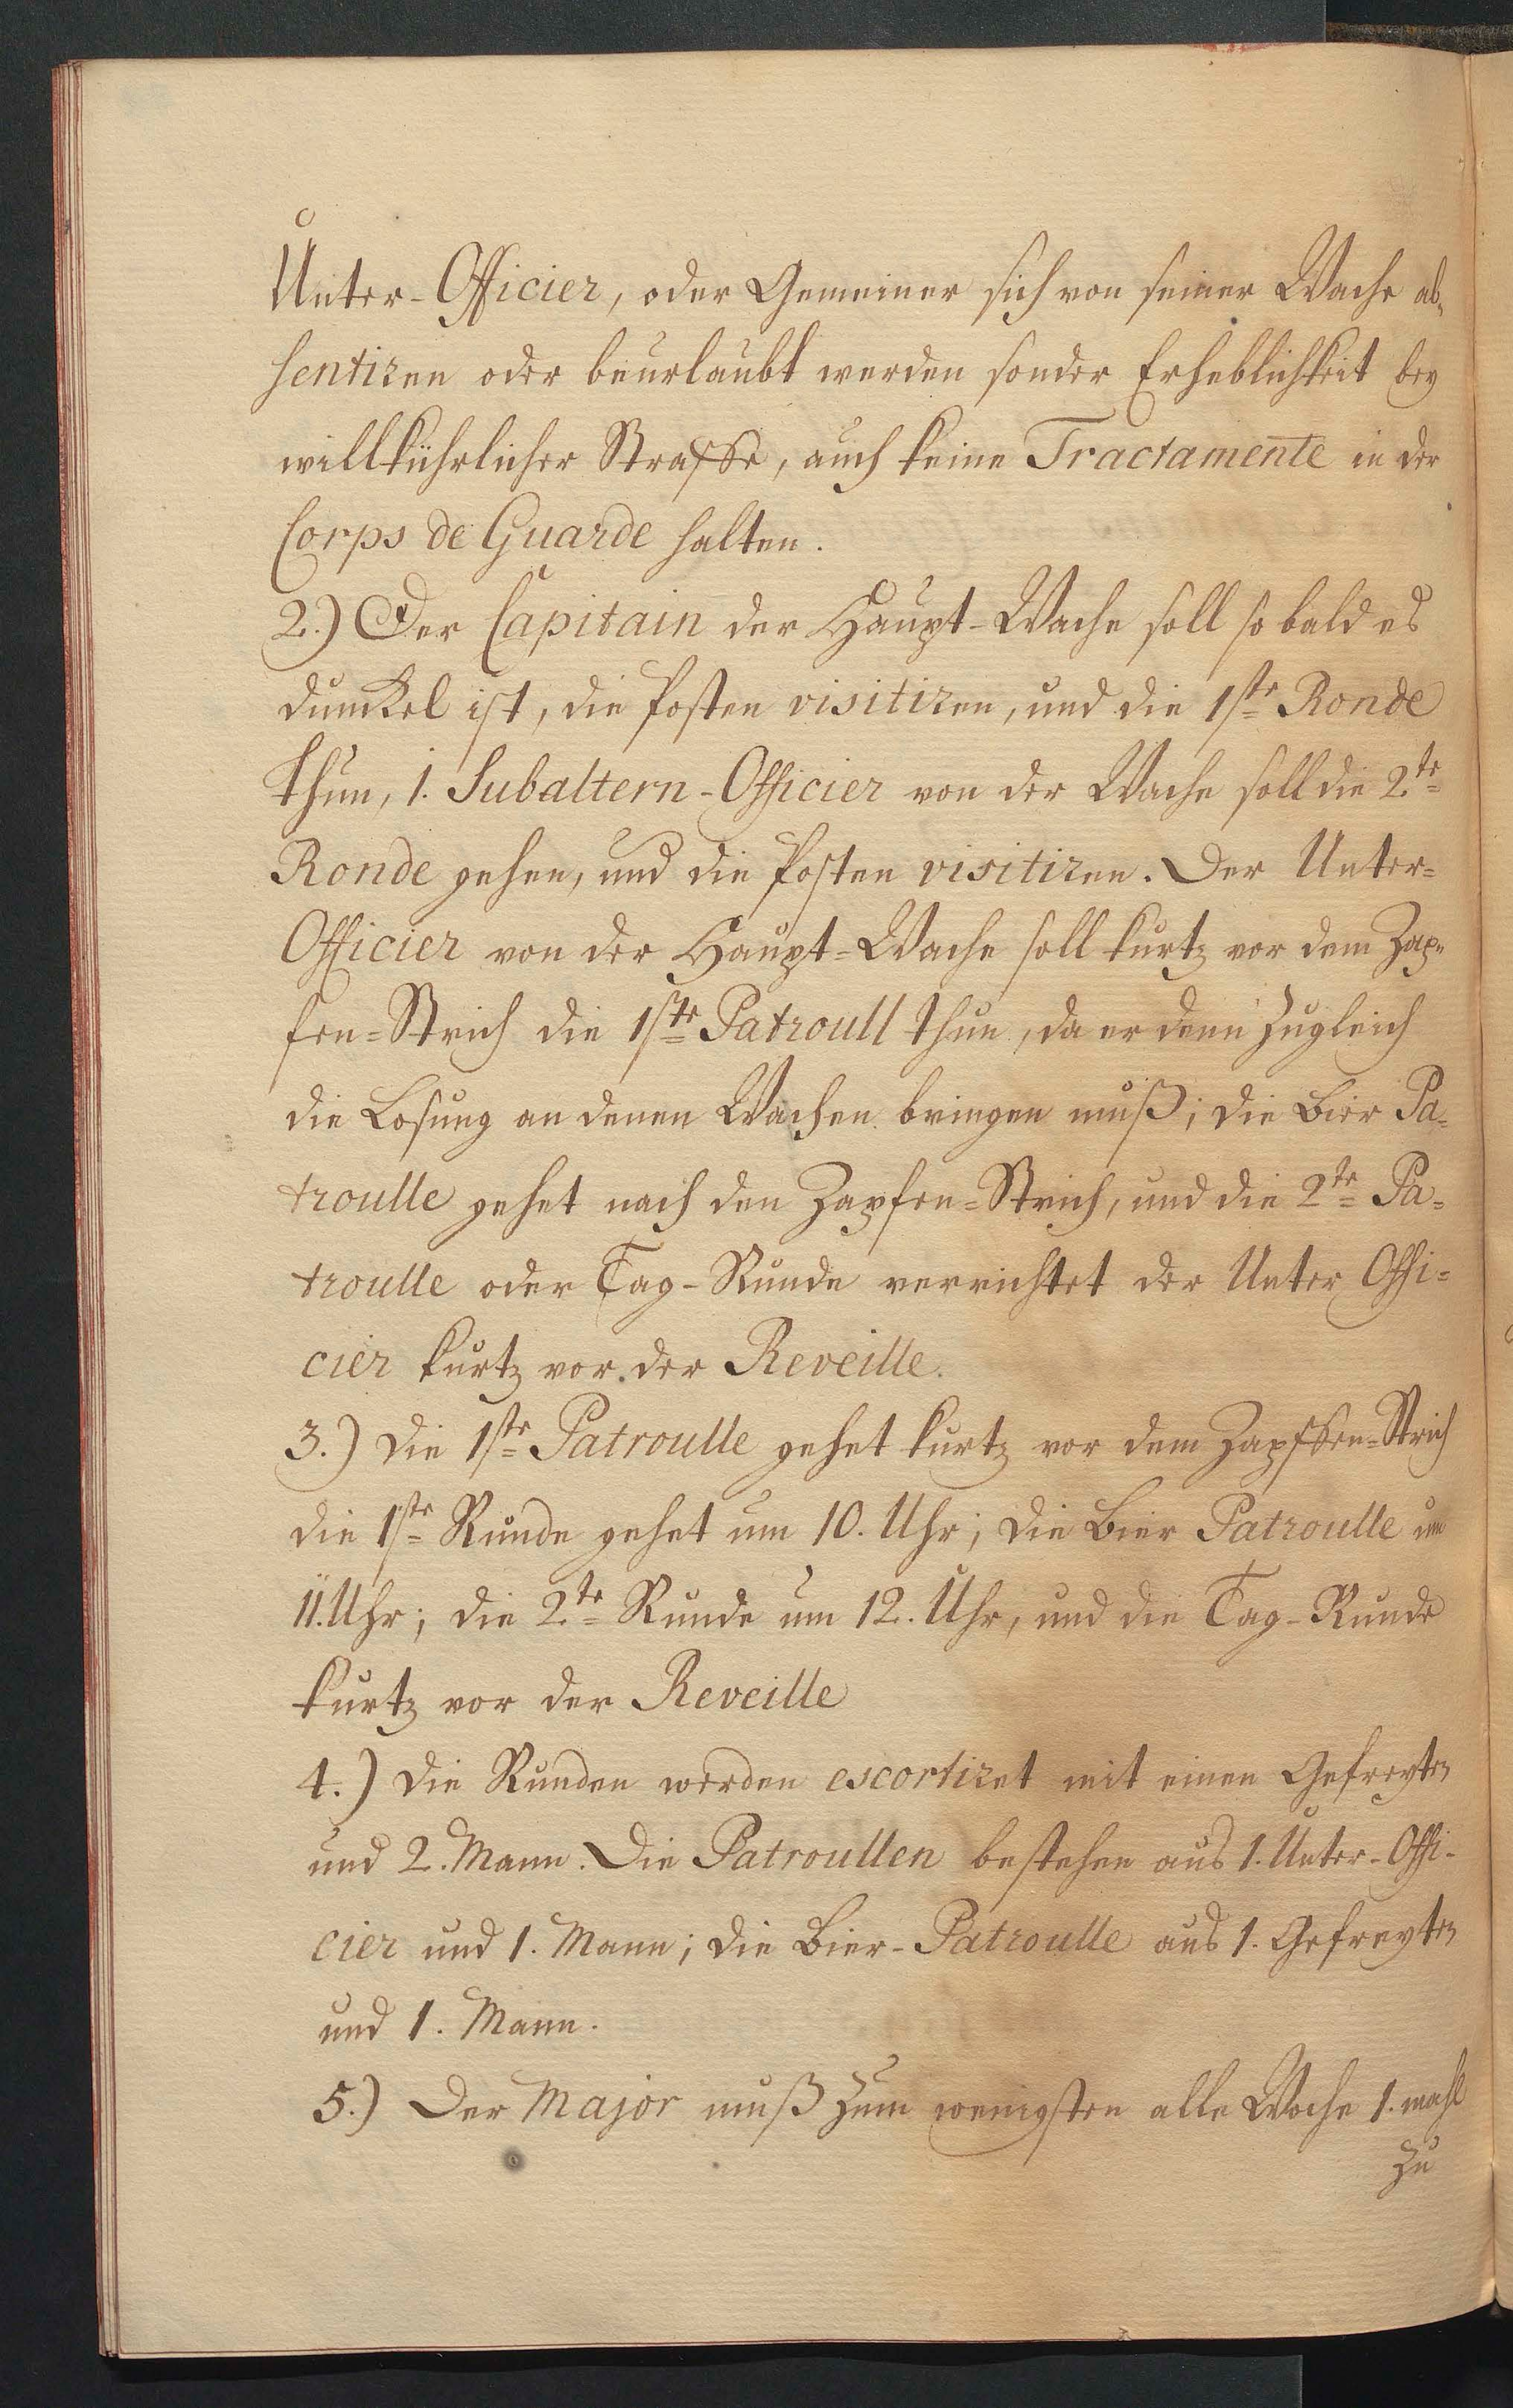 Unter-Officier, oder Gemeiner sich von seiner Wache ab-
sentiren oder beurlaubt werden sonder Erheblichkeit bey
willkührlicher Straffe, auch keine Tractamente in der
Corps de Guarde halten.
2.) Der Capitain der Haupt-Wache soll so bald es
dunckel ist, die Posten visitiren, und die 1ste Ronde
thun, 1. Subaltern-Officier von der Wache soll die 2te
Ronde gehen, und die Posten visitiren. Der Unter-
Officier von der Haupt-Wache soll kurtz vor dem Zap-
fen-Strich die 1ste Patroull thun, da er denn zugleich
die Losung an denen Wachen bringen muß; die Bier Pa-
troulle gehet nach den Zapfen-Strich, und die 2te Pa-
troulle oder Tag-Runde verrichtet der Unter Offi-
cier kurtz vor der Reveille.
3.) Die 1ste Patroulle gehet kurtz vor dem Zapffen-Strich
die 1ste Runde gehet um 10. Uhr; die Bier Patroulle um
11. Uhr; die 2te Runde um 12. Uhr, und die Tag-Runde
kurtz vor der Reveille
4.) Die Runden werden escortiret mit einen Gefreyten
und 2. Mann. Die Patroullen bestehen aus 1. Unter-Offi-
cier und 1. Mann; die Bier-Patroulle aus 1. Gefreyten
und 1. Mann.
5.) Der Major muß zum wenigsten alle Woche 1. mahl
zu